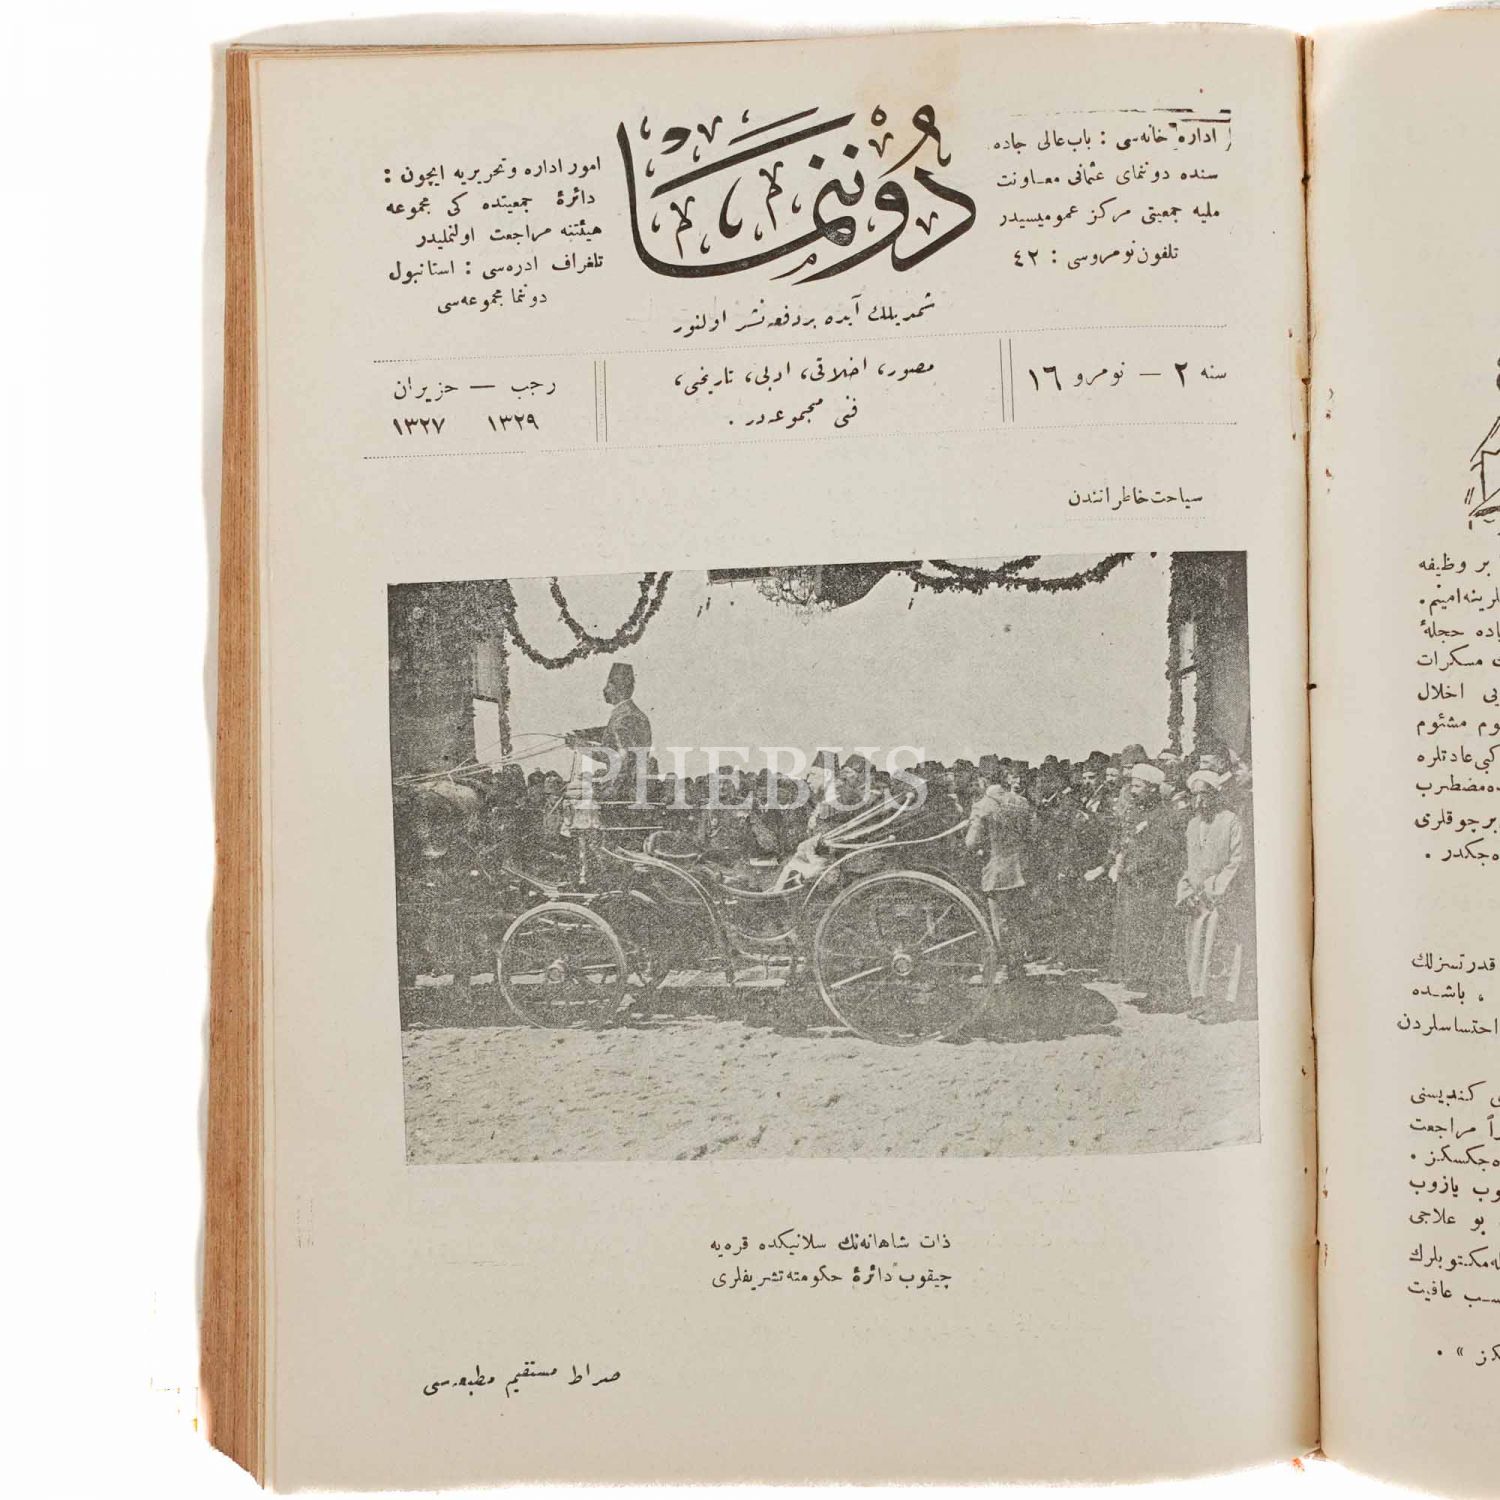 دوننما
اداره خانه‌سی : باب‌عالی جاده
سنده دوننمای عثمانی معاونت
ملیه جمعیتی مرکز عمومیسیدر
تلفون نومروسی : ٤٢
امور اداره وتحریریه ایچون :
دائرهٔ جمعیتده کی مجموعه
هیئتنه مراجعت اولنملیدر
تلغراف ادره‌سی : استانبول
دوننما مجموعه‌سی
شمدیلك آیده بردفعه نشر اولنور
سنه ٢ — نومرو ١٦
مصور، اخلاقی، ادبی، تاریخی،
فنی مجموعه‌در .
رجب — حزیران
١٣٢٩ ١٣٢٧
سیاحت خاطراتندن
PHEBUS
ذات شاهانه‌نك سلانیکده قره‌یه
چیقوب دائرهٔ حکومته تشریفلری
صراط مستقیم مطبعه‌سی
بر وظیفه
امینم .
حجلهٔ
مسکرات
اخلال
مشئوم
کبی عادتلره
مضطرب
برچوقلری
جکدر .
قدرتسزلك
، باشده
احتساسلردن
کندیسنی
مراجعت
جکسکز .
یازوب
بو علاجی
مکتوبلرك
عافیت